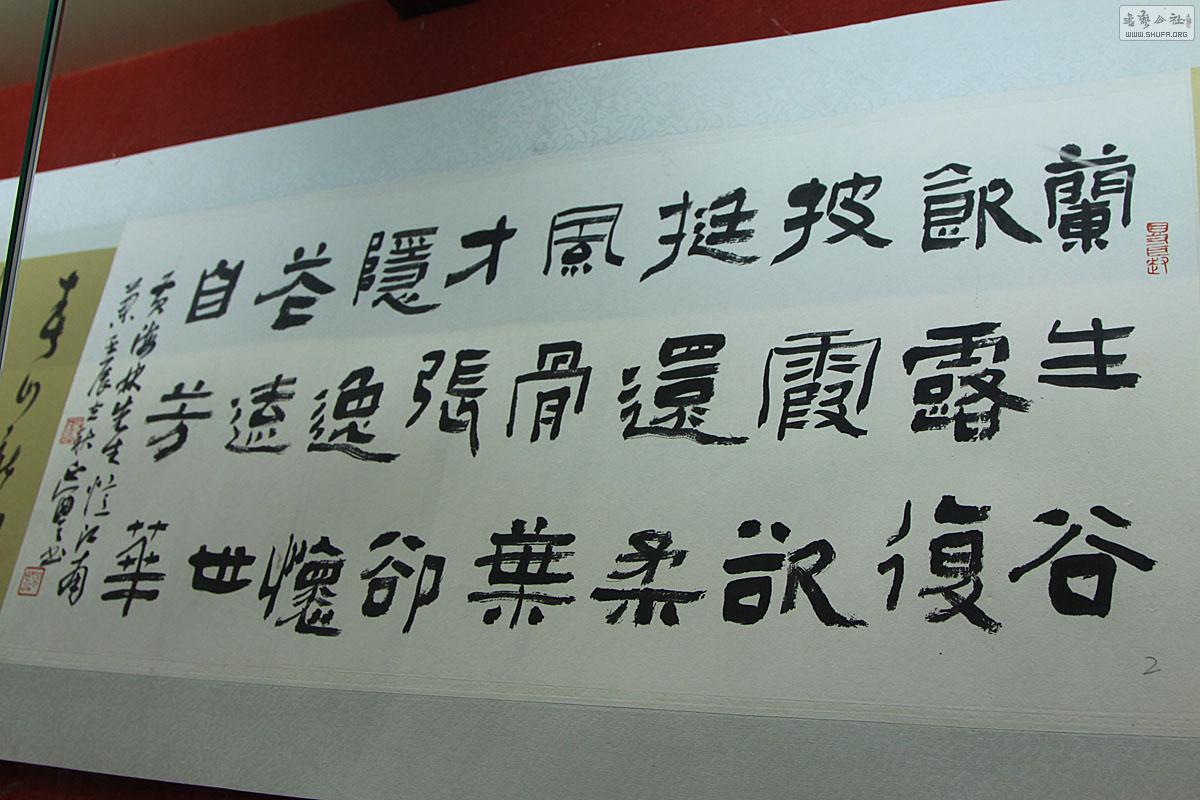 蘭生谷
飲露復
披霞欲
挺還柔
風骨葉
才張卻
隱逸懷
花遠世
自芳華
海林先生憶江南
蘭壬辰之秋書
2
書藝公社
WWW.SHUFA.ORG